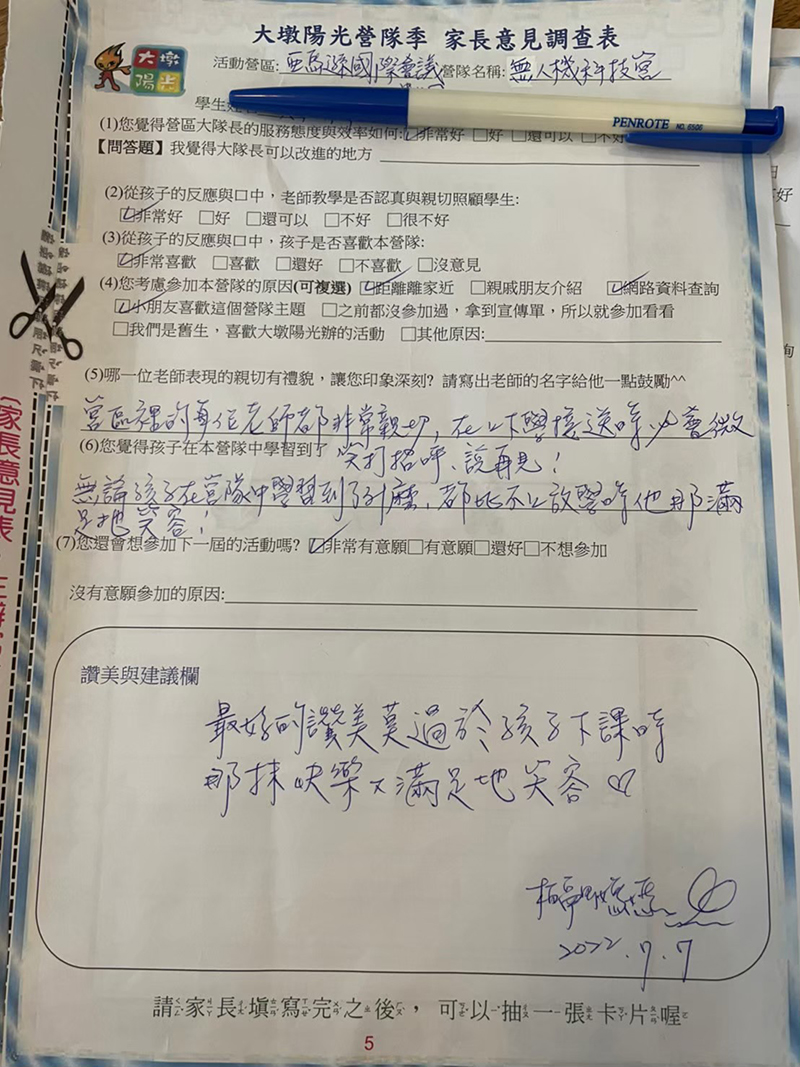 大墩陽光營隊季 家長意見調查表
大墩
陽光
活動營區: 亞馬遜國際會議 營隊名稱: 無人機科技宮
學生姓名
PENROTE NO. 6506
(1)您覺得營區大隊長的服務態度與效率如何: ☑非常好 □好 □還可以 □不好
【問答題】我覺得大隊長可以改進的地方
(2)從孩子的反應與口中,老師教學是否認真與親切照顧學生:
☑非常好 □好 □還可以 □不好 □很不好
(3)從孩子的反應與口中,孩子是否喜歡本營隊:
☑非常喜歡 □喜歡 □還好 □不喜歡 □沒意見
(4)您考慮參加本營隊的原因(可複選) ☑距離離家近 □親戚朋友介紹 ☑網路資料查詢
☑小朋友喜歡這個營隊主題 □之前都沒參加過,拿到宣傳單,所以就參加看看
□我們是舊生,喜歡大墩陽光辦的活動 □其他原因:
(5)哪一位老師表現的親切有禮貌,讓您印象深刻? 請寫出老師的名字給他一點鼓勵^^
營區裡的每位老師都非常親切,在上下學接送時必會微
(6)您覺得孩子在本營隊中學習到了 笑打招呼、說再見!
無論孩子在營隊中學習到了什麼,都比不上放學時他那滿
足地笑容!
(7)您還會想參加下一屆的活動嗎? ☑非常有意願□有意願□還好□不想參加
沒有意願參加的原因:
讚美與建議欄
最好的讚美莫過於孩子下課時
那抹快樂又滿足地笑容♡
2022.7.7
請家長填寫完之後,可以抽一張卡片喔
5
(家長意見表